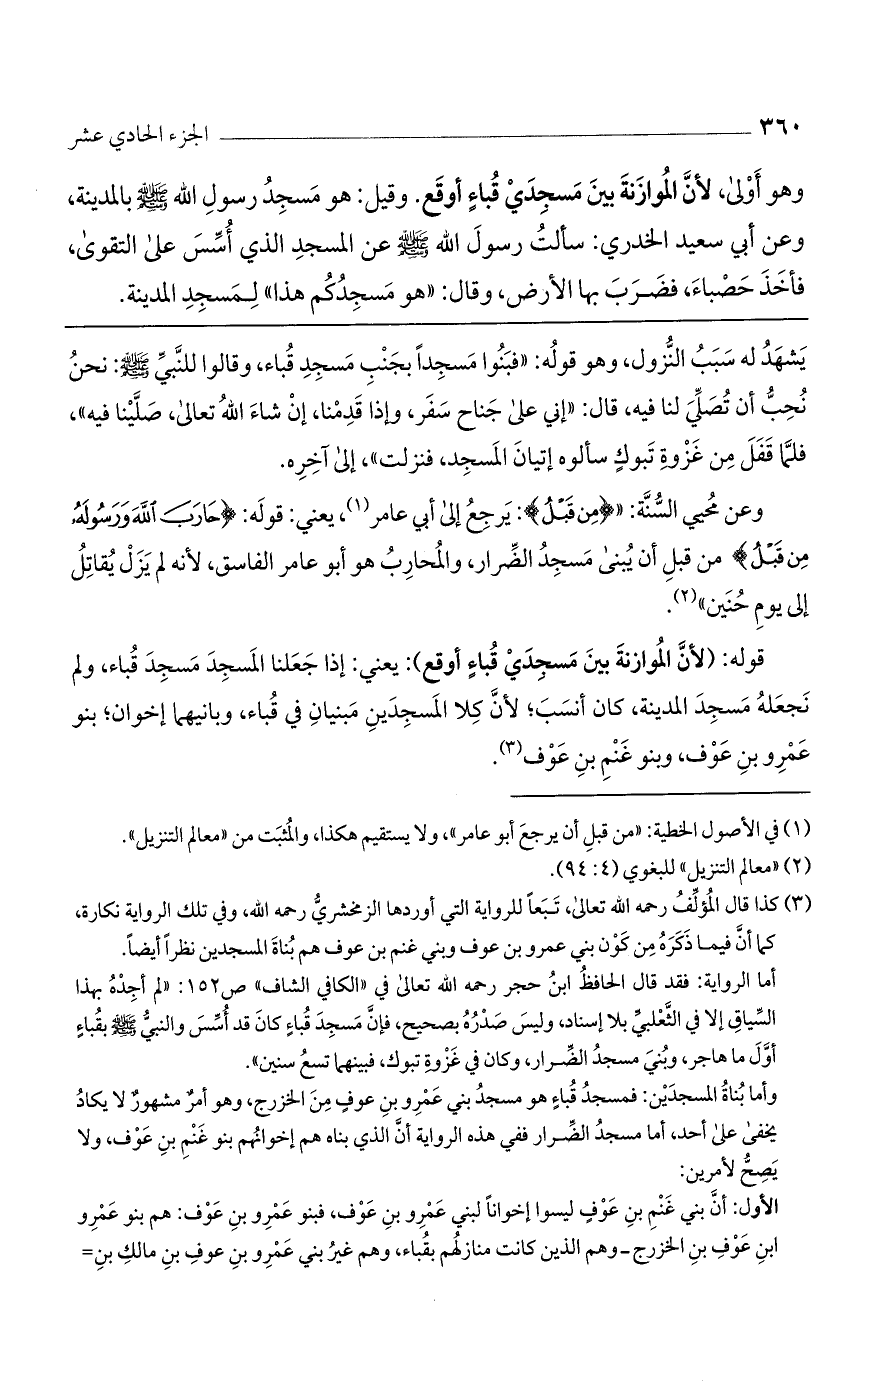 ٣٦٠ الجزء الحادي عشر
وهو أَوْلىٰ، لأنَّ المُوازَنةَ بينَ مَسجِدَيْ قُباءٍ أوقَع. وقيل: هو مَسجِدُ رسولِ الله ﷺ بالمدينة،
وعن أبي سعيد الخدري: سألتُ رسولَ الله ﷺ عن المسجدِ الذي أُسِّسَ علىٰ التقوىٰ،
فأخَذَ حَصْباءَ، فضَـرَبَ بها الأرض، وقال: «هو مَسجِدُكُم هذا» لِـمَسجِدِ المدينة.
يَشهَدُ له سَبَبُ النُّزول، وهو قولُه: «فبَنُوا مَسجِداً بجَنْبِ مَسجِدِ قُباء، وقالوا للنَّبيِّ ﷺ: نحنُ
نُحِبُّ أن تُصَلِّيَ لنا فيه، قال: «إني علىٰ جَناح سَفَر، وإذا قَدِمْنا، إنْ شاءَ اللهُ تعالىٰ، صَلَّيْنا فيه»،
فلمَّا قَفَلَ مِن غَزْوةِ تَبوكٍ سألوه إتيانَ المَسجِد، فنزلت»، إلىٰ آخِرِه.
وعن مُحيي السُّنَّة: «﴿مِن قَبْلُ﴾: يَرجِعُ إلىٰ أبي عامر(١)، يعني: قولَه: ﴿حَارَبَ ٱللَّهَ وَرَسُولَهُۥ
مِن قَبْلُ﴾ من قبلِ أن يُبنىٰ مَسجِدُ الضِّرار، والمُحارِبُ هو أبو عامر الفاسق، لأنه لم يَزَلْ يُقاتِلُ
إلى يومِ حُنَين»(٢).
قوله: (لأنَّ المُوازنةَ بينَ مَسجِدَيْ قُباءٍ أوقع): يعني: إذا جَعَلنا المَسجِدَ مَسجِدَ قُباء، ولم
نَجعَلهُ مَسجِدَ المدينة، كان أنسَبَ؛ لأنَّ كِلا المَسجِدَينِ مَبنيانِ في قُباء، وبانيهما إخوان؛ بنو
عَمْرِو بنِ عَوْف، وبنو غَنْمِ بنِ عَوْف(٣).
(١) في الأصول الخطية: «من قبلِ أن يرجعَ أبو عامر»، ولا يستقيم هكذا، والمُثبَت من «معالم التنزيل».
(٢) «معالم التنزيل» للبغوي (٤: ٩٤).
(٣) كذا قال المُؤلِّفُ رحمه الله تعالىٰ، تَبَعاً للرواية التي أوردها الزمخشريُّ رحمه الله، وفي تلك الرواية نكارة،
كما أنَّ فيمـا ذَكَرَهُ مِن كَوْن بني عمرو بن عوف وبني غنم بن عوف هم بُناةَ المسجدين نظراً أيضاً.
أما الرواية: فقد قال الحافظُ ابنُ حجر رحمه الله تعالىٰ في «الكافي الشاف» ص١٥٢: «لم أجِدْهُ بهذا
السِّياقِ إلا في الثَّعْلبيِّ بلا إسناد، وليسَ صَدْرُهُ بصحيح، فإنَّ مَسجِدَ قُباءٍ كانَ قد أُسِّسَ والنبيُّ ﷺ بقُباءٍ
أوَّلَ ما هاجر، وبُنيَ مسجدُ الضِّـرار، وكان في غَزْوةِ تبوك، فبينهما تسعُ سنين».
وأما بُناةُ المسجدَيْن: فمسجدُ قُباءٍ هو مسجدُ بني عَمْرِو بنِ عوفٍ مِنَ الخزرج، وهو أمرٌ مشهورٌ لا يكادُ
يخفىٰ علىٰ أحد، أما مسجدُ الضِّـرار ففي هذه الرواية أنَّ الذي بناه هم إخوانُهم بنو غَنْمِ بنِ عَوْف، ولا
يَصِحُّ لأمرين:
الأول: أنَّ بني غَنْمِ بنِ عَوْفٍ ليسوا إخواناً لبني عَمْرِو بنِ عَوْف، فبنو عَمْرِو بنِ عَوْف: هم بنو عَمْرِو
ابنِ عَوْفِ بنِ الخزرج ـ وهم الذين كانت منازلُهم بقُباء، وهم غيرُ بني عَمْرِو بنِ عوفِ بنِ مالكِ بنِ=